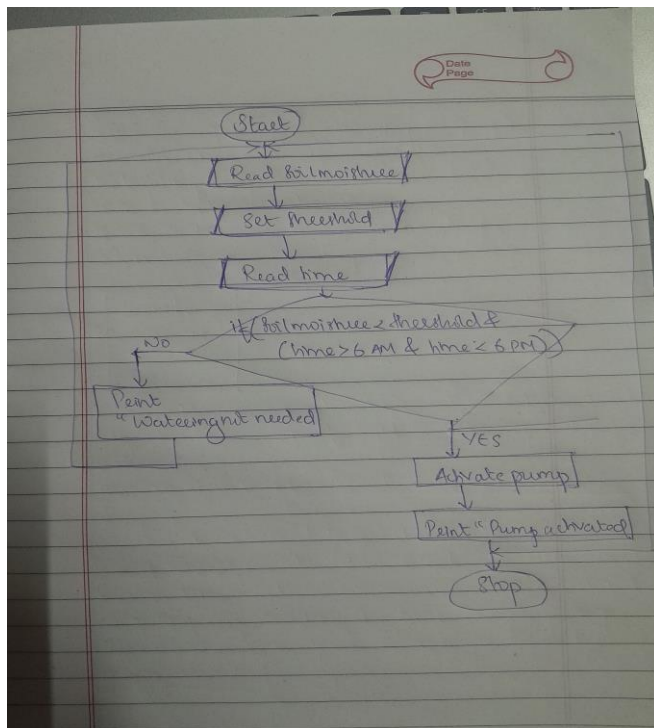 Date
Page
Start
Read Soilmoisture
Set threshold
Read time
if(Soilmoisture < threshold &
(time > 6 AM & time < 6 PM))
NO
Print
"Watering not needed
YES
Activate pump
Print "Pump activated
Stop